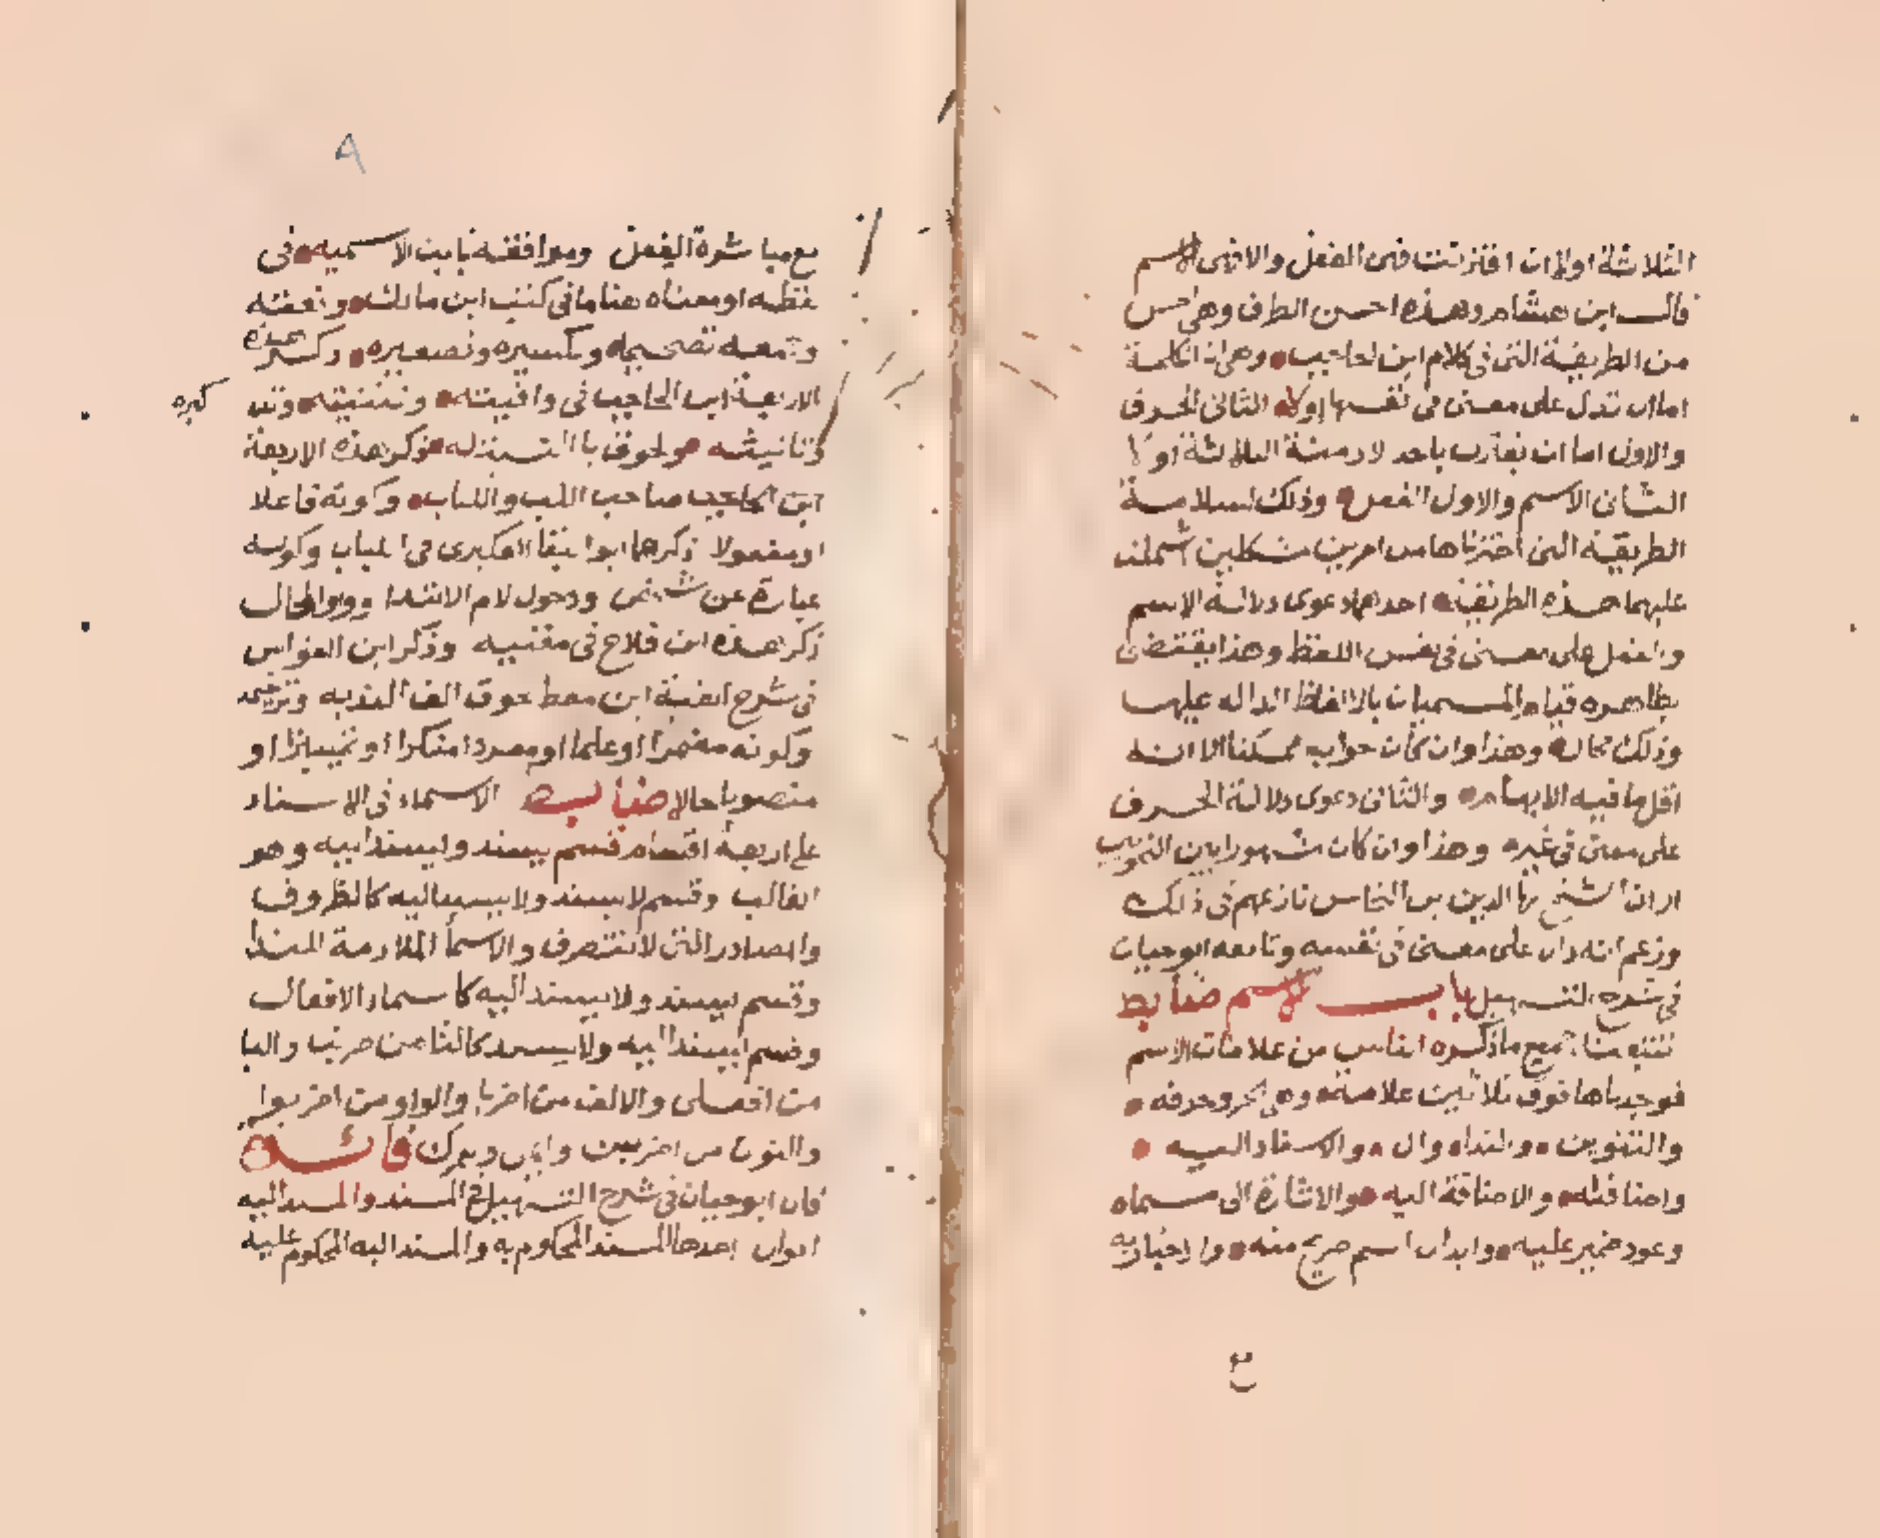 الثلاثة اولا ان اقترنت فهى الفعل والا فهى الاسم
قال ابن هشام وهذه احسن الطرق وهى احسن
من الطريقة التى فى كلام ابن الحاجب وهى ان الكلمة
اما ان تدل على معنى فى نفسها اولا الثانى الحرف
والاول اما ان يقترن باحد الازمنة الثلاثة اولا
الثانى الاسم والاول الفعل وذلك لسلامة
الطريقة التى اخترناها من امرين مشكلين اشتملت
عليهما هذه الطريقة احدهما دعوى دلالة الاسم
والفعل على معنى فى نفس اللفظ وهذا يقتضى
بظاهره قيام المسميات بالالفاظ الداله عليها
وذلك محال وهذا وان كان جوابه ممكنا الا انه
اقل ما فيه الابهام والثانى دعوى دلالة الحرف
على معنى فى غيره وهذا وان كان مشهورا بين النحويين
الا ان الشيخ بها الدين بن النحاس نازعهم فى ذلك
وزعم انه دال على معنى فى نفسه وتابعه ابو حيان
فى شرح التسهيل باب الاسم ضابط
تتبعنا جميع ما ذكره الناس من علامات الاسم
فوجدناها فوق ثلاثين علامة وهى الجر وحروفه
والتنوين والنداء وال والاسناد اليه
واضافته والاضافة اليه والاشارة الى مسماه
وعود ضمير عليه وابدال اسم صريح منه والاخبار به
٨
مع مباشرة الفعل وموافقة ثابت الاسميه فى
لفظه او معناه هذا ما فى كتب ابن مالك ونعته
وجمعه تصحيحا وتكسيره وتصغيره ذكر هذه
الاربعة ابن الحاجب فى وافيته وتثنيته وتذ
كيره
وتانيثه ولحوق يا النسبة له ذكر هذه الاربعة
ابن الحاجب صاحب اللب واللباب وكونه فاعلا
او مفعولا ذكرهما ابو البقا العكبرى فى اللباب وكونه
عبارة عن شخص ودخول لام الابتدا وواو الحال
ذكر هذه ابن فلاح فى مغنيه وذكر ابن القواس
فى شرح الفية ابن معط لحوق الف الندبه وترخيمه
وكونه مضمرا او علما او مفردا منكرا او تمييزا او
منصوبا حالا ضابط الاسماء فى الاسناد
على اربعة اقسام قسم يسند ويسند اليه وهو
الغالب وقسم لا يسند ولا يسند اليه كالظروف
والمصادر التى لا تتصرف والاسما الملازمة للندا
وقسم يسند ولا يسند اليه كاسماء الافعال
وقسم يسند اليه ولا يسند كالتا من ضربت واليا
من افعلى والالف من اضربا والواو من اضربوا
والنون من اضربن وايمن وعمرك فائدة
قال ابو حيان فى شرح التسهيل فى المسند والمسند اليه
اقوال احدها المسند المحكوم به والمسند اليه المحكوم عليه